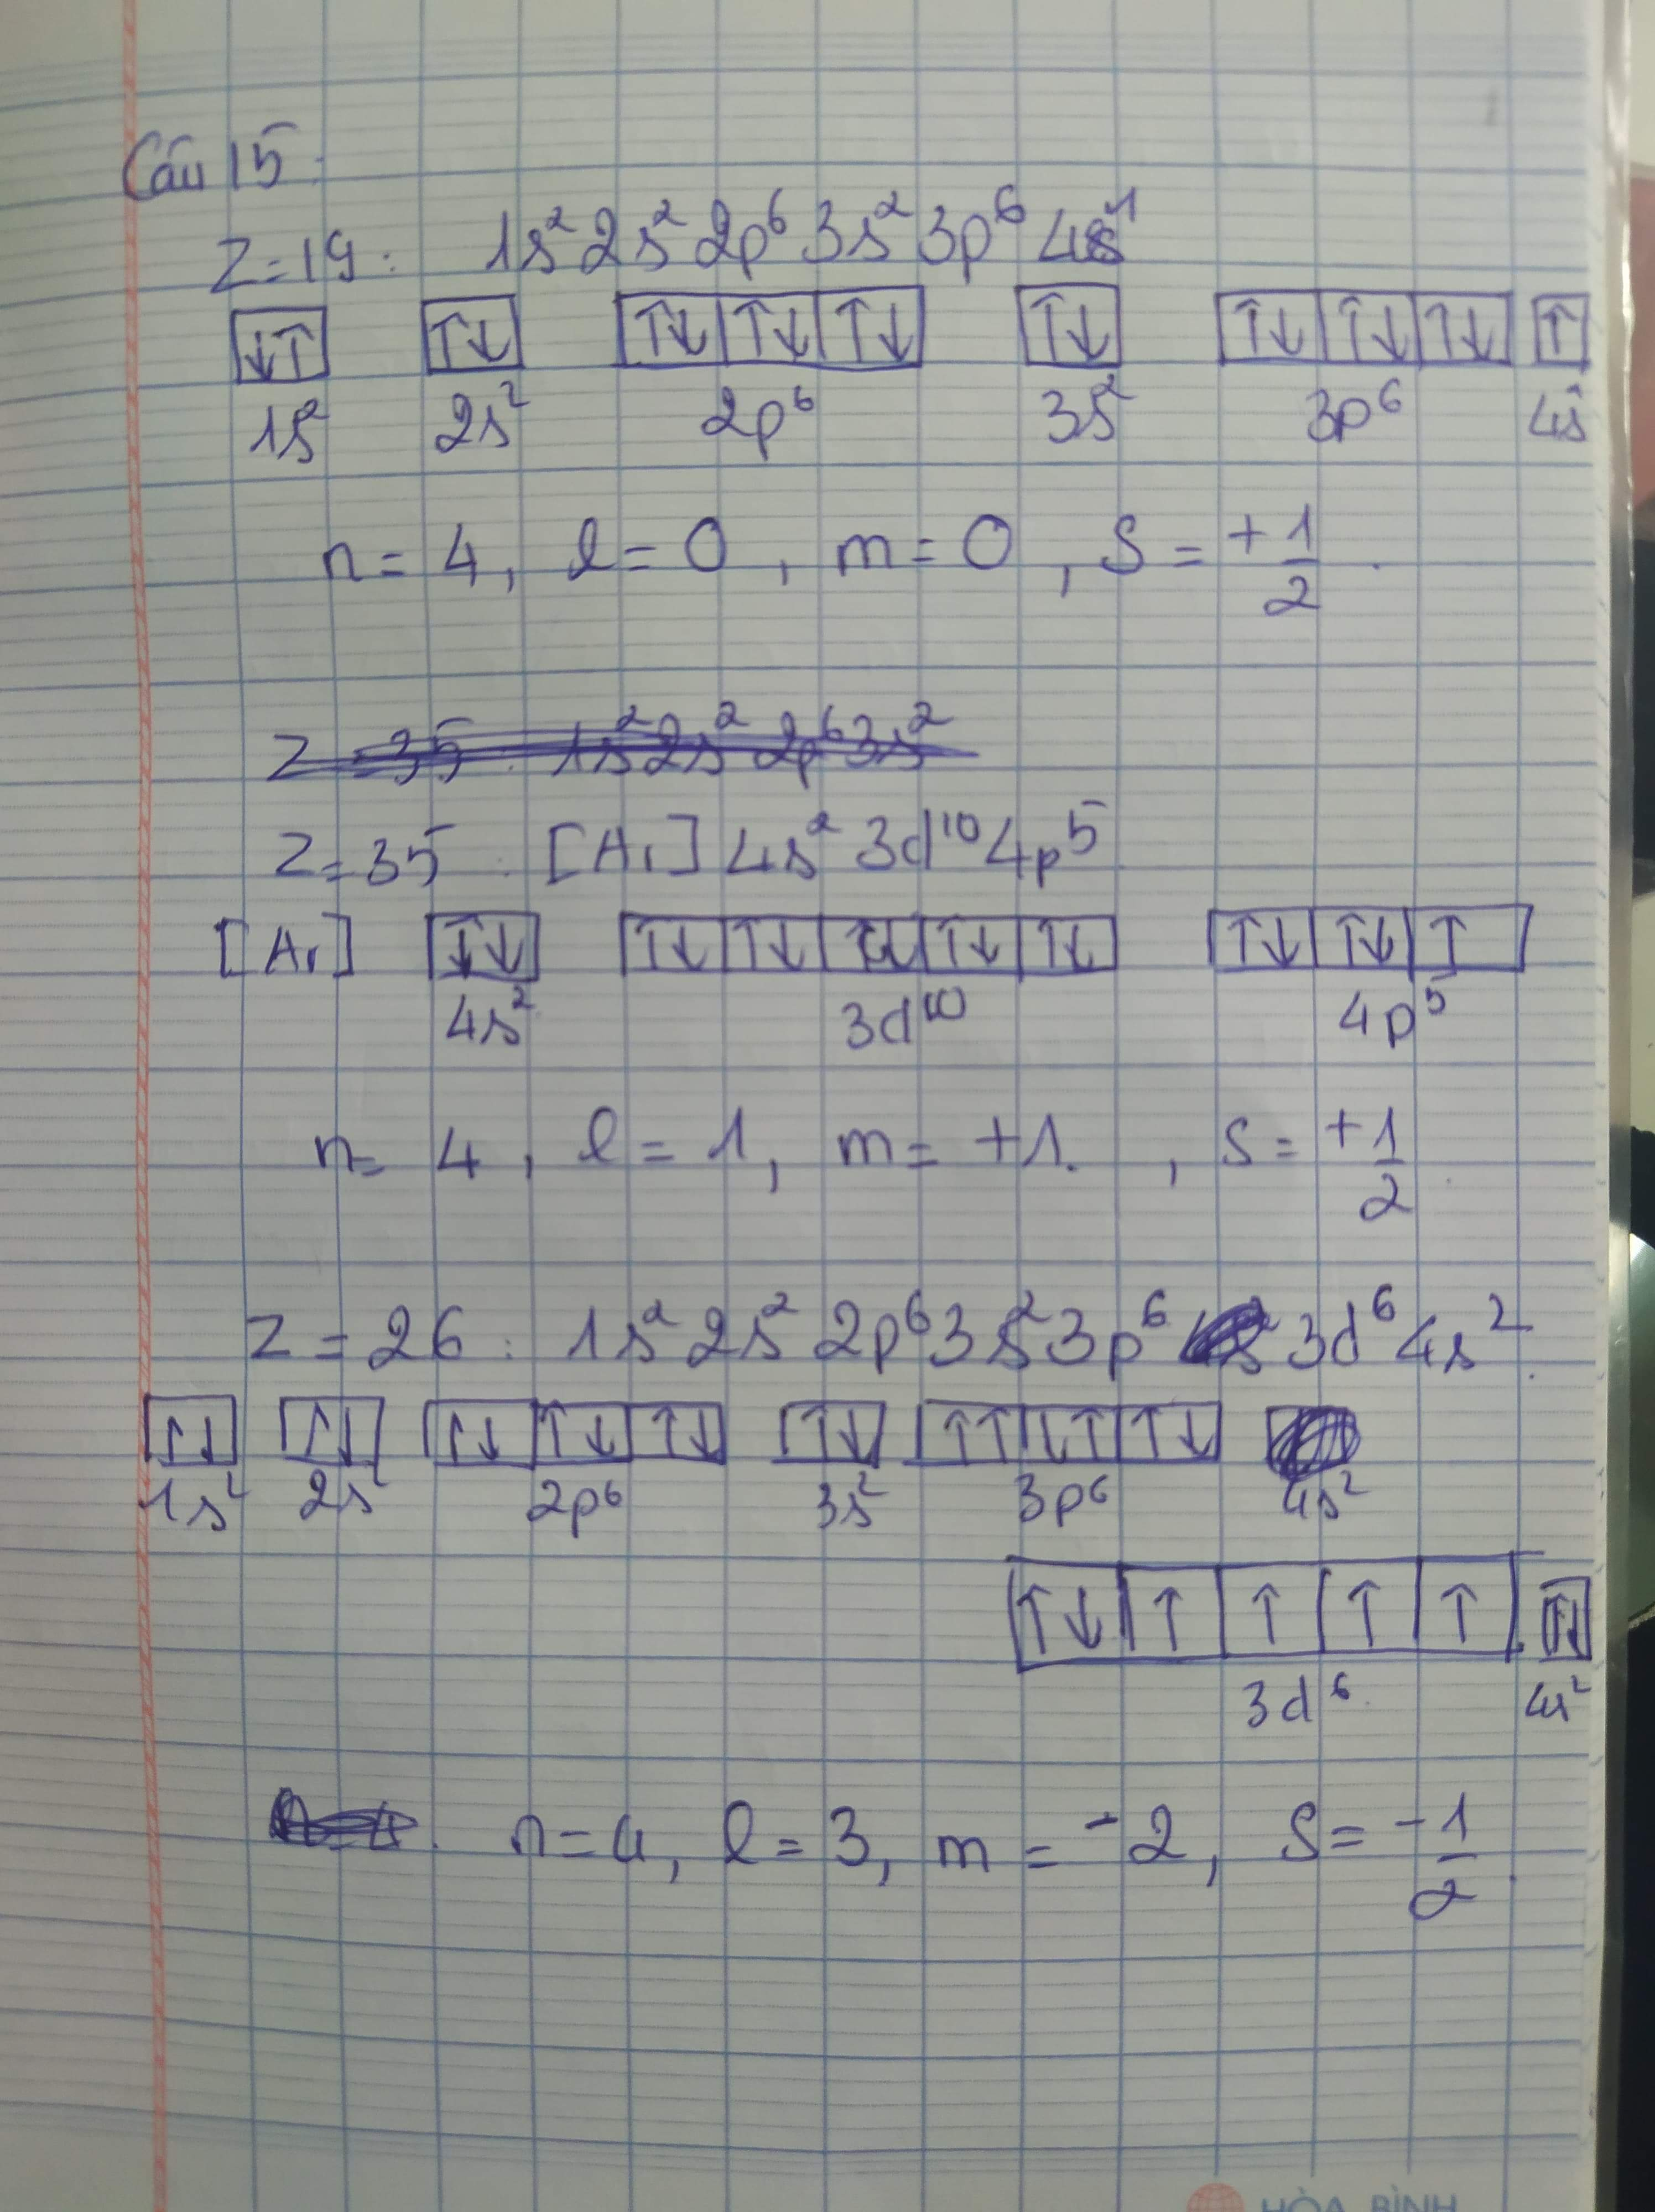 Câu 15:
Z=19: 1s² 2s² 2p⁶ 3s² 3p⁶ 4s¹
↓↑ ↑↓ ↑↓ ↑↓ ↑↓ ↑↓ ↑↓ ↑↓ ↑↓ ↑
1s² 2s² 2p⁶ 3s² 3p⁶ 4s¹
n = 4, l = 0, m = 0, s = +1/2.
Z=35: 1s² 2s² 2p⁶ 3s²
Z=35: [Ar] 4s² 3d¹⁰ 4p⁵
[Ar] ↑↓ ↑↓ ↑↓ ↑↓ ↑↓ ↑↓ ↑↓ ↑↓ ↑
4s² 3d¹⁰ 4p⁵
n= 4, l = 1, m = +1. , s = +1/2
Z = 26: 1s² 2s² 2p⁶ 3s² 3p⁶ 3d⁶ 4s².
↑↓ ↑↓ ↑↓ ↑↓ ↑↓ ↑↓ ↑↑ ↓↑ ↑↓
1s² 2s² 2p⁶ 3s² 3p⁶ 4s²
↑↓ ↑ ↑ ↑ ↑ ↑↓
3d⁶ 4s²
n=4, l = 3, m = -2, s = -1/2.
HÒA BÌNH